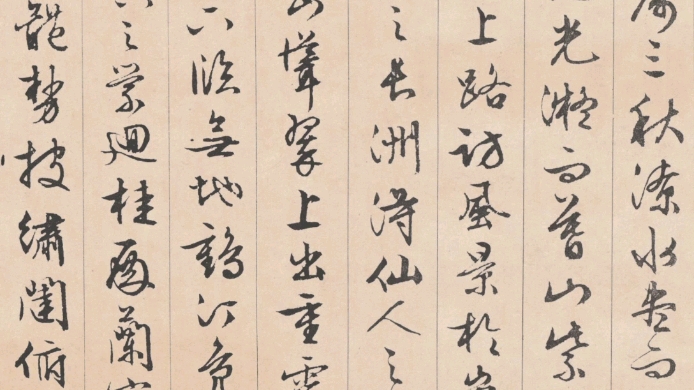 屬三秋潦水盡而
光凝而暮山紫
上路訪風景於崇
之長洲得仙人之
聳翠上出重霄
下臨無地鶴汀鳧
之縈迴桂殿蘭宮
體勢披繡闥俯